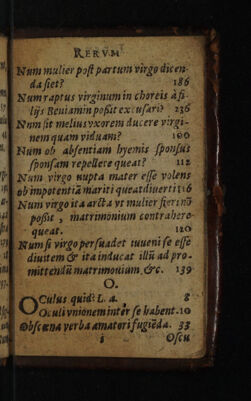 RERVM
Num mulier post partum virgo dicen-
da siet? 186
Num raptus virginum in choreis à fi-
lijs Beniamin possit excusari? 236
Num sit melius vxorem ducere virgi-
nem quam viduam? 100
Num ob absentiam hyemis sponsus
sponsam repellere queat? 112
Num virgo nupta mater esse volens
ob impotentiā mariti queat diuerti 116
Num virgo ita arcta vt mulier fieri nō
possit, matrimonium contrahere
queat. 120
Num si virgo persuadet iuueni se esse
diuitem & ita inducat illū ad pro-
mittendū matrimonium, &c. 139
O.
OCulus quid? L. a. 8
Oculi vnionem intèr se habent. 10
Obscæna verba amatori fugiēda. 33
Oscu